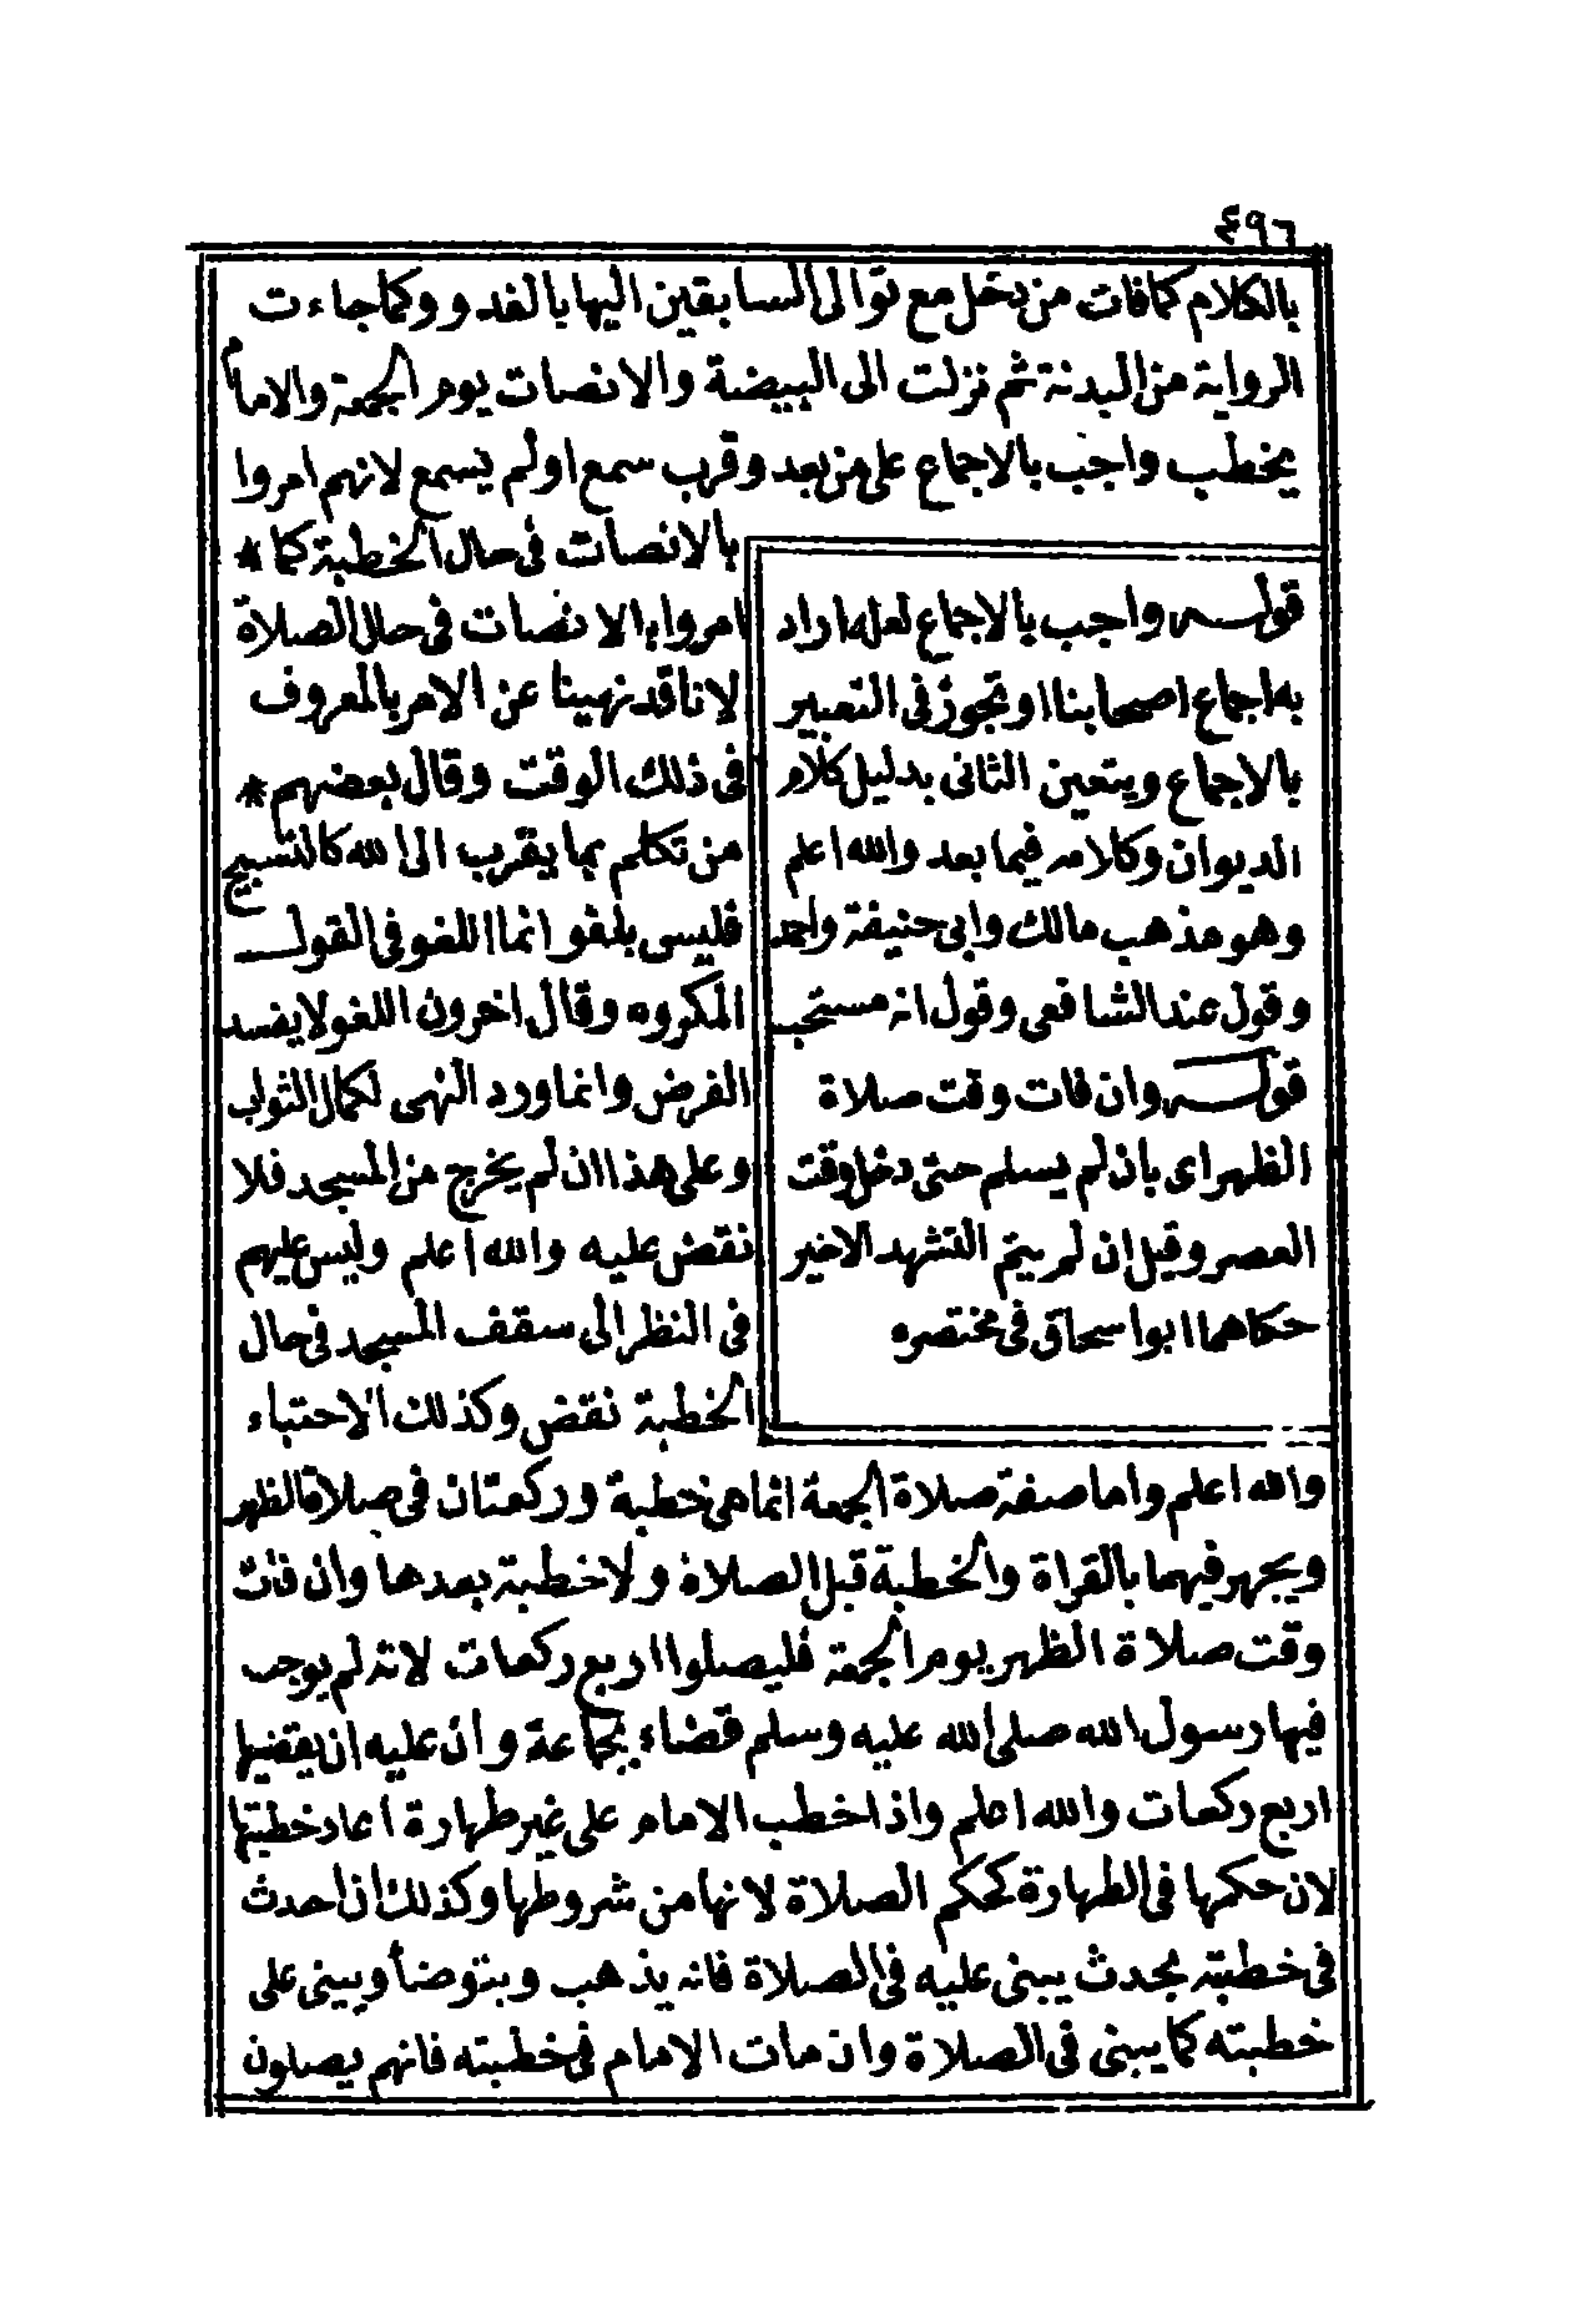 ٤٩٦
بالكلام كما فات من دخل مع توالى السابقين اليها بالغدو وكما جاءت
الرواية من البدنة ثم نزلت الى البيضة والانصات يوم الجمعة والامام
يخطب واجب بالاجماع على من بعد وقرب سمع او لم يسمع لانهم امروا
بالانصات فى حال الخطبة كما *
امروا بالانصات فى حال الصلاة
لانا قد نهينا عن الامر بالمعروف
فى ذلك الوقت وقال بعضهم *
من تكلم بما يقرب الى الله كالتسبيح
فليس بلغو انما اللغو فى القول
المكروه وقال اخرون اللغو لا يفسد
الفرض وانما ورد النهى لكمال الثواب
وعلى هذا ان لم يخرج من المسجد فلا
نقض عليه والله اعلم وليس عليهم
فى النظر الى سقف المسجد فى حال
الخطبة نقض وكذلك الاحتباء
قوله واجب بالاجماع لعله اراد
به اجماع اصحابنا او تجوز فى التعبير
بالاجماع ويتعين الثانى بدليل كلام
الديوان وكلامه فيما بعد والله اعلم
وهو مذهب مالك وابى حنيفة واحمد
وقول عند الشافعى وقول انه مستحب
قوله وان فات وقت صلاة
الظهر اى بان لم يسلم حتى دخل وقت
العصر وقيل ان لم يتم التشهد الاخير
حكاهما ابو اسحاق فى مختصره
والله اعلم واما صفة صلاة الجمعة انما هى خطبة وركعتان فى صلاة الظهر
ويجهر فيهما بالقراة والخطبة قبل الصلاة ولا خطبة بعدها وان فات
وقت صلاة الظهر يوم الجمعة فليصلوا اربع ركعات لانه لم يوجب
فيها رسول الله صلى الله عليه وسلم قضاء بجماعة وان عليه ان يقضيها
اربع ركعات والله اعلم واذا خطب الامام على غير طهارة اعاد خطبتها
لان حكمها فى الطهارة كحكم الصلاة لانها من شروطها وكذلك اذا حدث
فى خطبته بحدث يبنى عليه فى الصلاة فانه يذهب ويتوضأ ويبنى على
خطبته كما يبنى فى الصلاة وان مات الامام فى خطبته فانهم يصلون